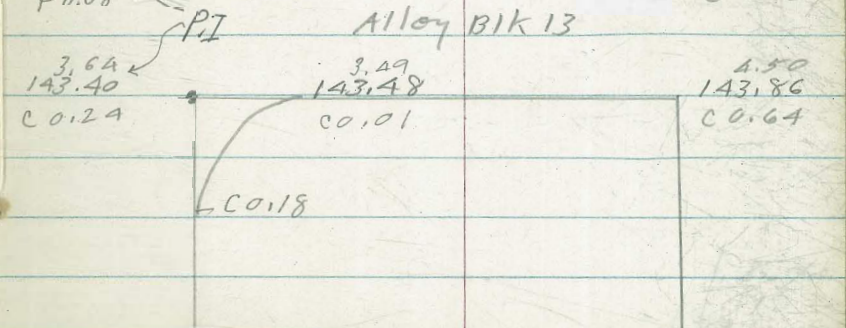 P.I
Alley Blk 13
3.64
143.40
C 0.24
3.49
143.48
C 0.01
4.50
143.86
C 0.64
C 0.18